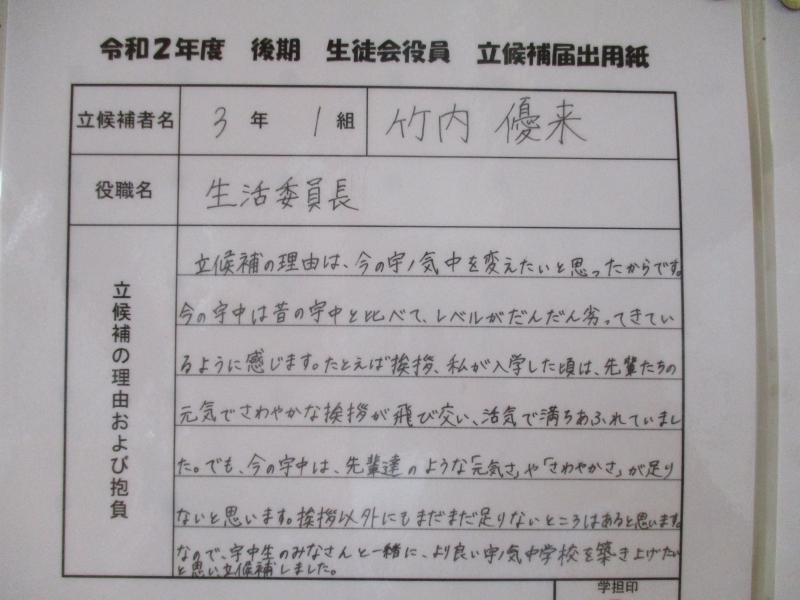 令和2年度 後期 生徒会役員 立候補届出用紙
立候補者名 3年 1組 竹内 優来
役職名 生活委員長
立候補の理由および抱負
立候補の理由は、今の宇ノ気中を変えたいと思ったからです。
今の宇中は昔の宇中と比べて、レベルがだんだん劣ってきてい
るように感じます。たとえば挨拶、私が入学した頃は、先輩たちの
元気でさわやかな挨拶が飛び交い、活気で満ちあふれていまし
た。でも、今の宇中は、先輩達のような「元気さ」や「さわやかさ」が足り
ないと思います。挨拶以外にもまだまだ足りないところはあると思います。
なので、宇中生のみなさんと一緒に、より良い宇ノ気中学校を築き上げたい
と思い立候補しました。
学担印